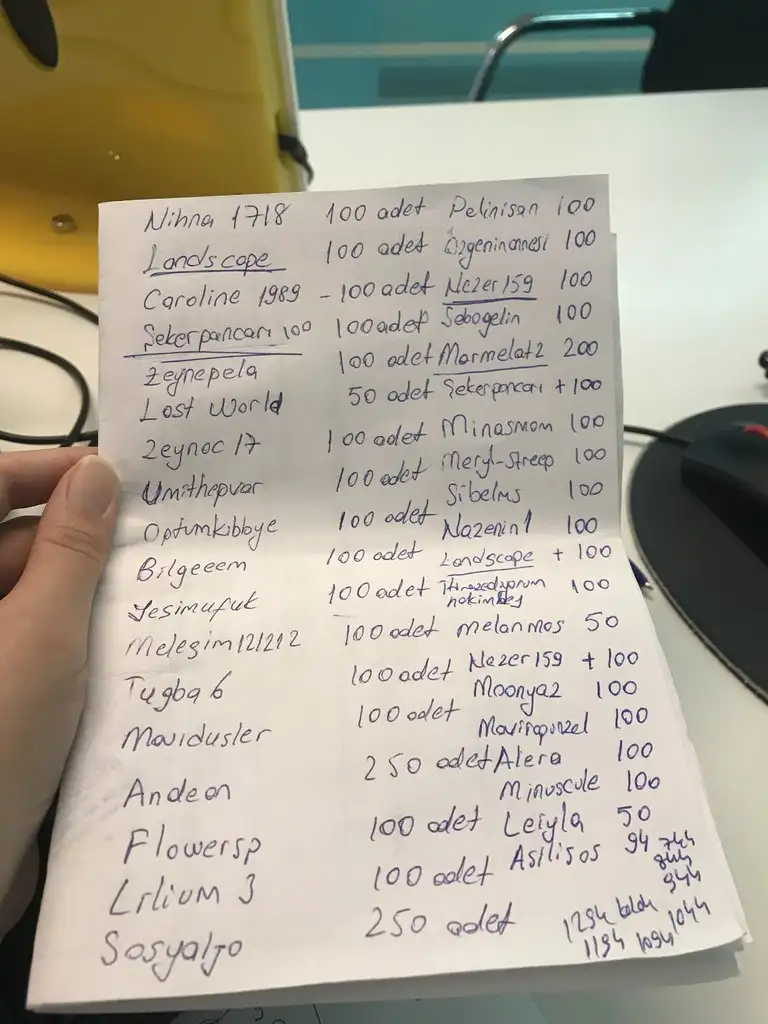 Nihna 1718 100 adet Pelinisan 100
Landscape 100 adet Özgeninannesi 100
Caroline 1989 - 100 adet Nezer159 100
Şekerpancarı 100 100 adet Sebogelin 100
Zeynepela 100 adet Marmelat2 200
Lost World 50 adet Şekerpancarı + 100
Zeynoc 17 100 adet Minasmom 100
Umithepvar 100 adet Meryl-Streep 100
Optumkibbye 100 adet Sibelms 100
Bilgeeem 100 adet Nazenin1 100
Yesimufuk 100 adet Landscape + 100
Melegim121212 100 adet 100
Tugba 6 100 adet melanmos 50
Mavidusler 100 adet Nezer159 + 100
Andean 250 adet Moonya2 100
Flowersp 100 adet Mavirapunzel 100
Lilium 3 100 adet Alera 100
Sosyaljo 250 adet Minuscule 100
Leiyla 50
Asilisos 94 744
844
944
1294 kaldı 1044
1194 1094